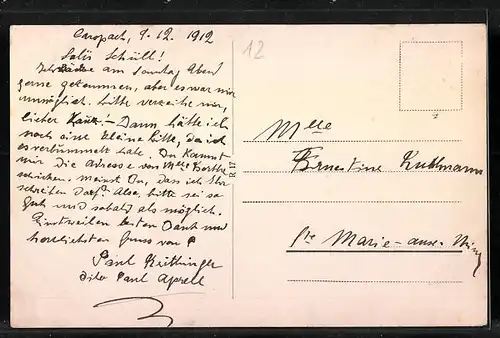 9.12.1912
Salü Schüll!
Ich wäre am Sonntag Abend
gerne gekommen, aber es war mir
unmöglich. Bitte verzeihe mir,
lieber Kauz. – Dann hätte ich
noch eine kleine Bitte, da ich
es verbummelt habe. Du kannst
mir die Adresse von Mlle Berthe
schicken. Meinst Du, dass ich Ihr
schreiben darf? Also, bitte sei so
gut und sobald als möglich.
Einstweilen besten Dank und
herzlichsten Gruss von
Paul
dito Paul
12
Mlle
Ernestine Kuhlmann
Ste Marie-aux-Mines
R 17